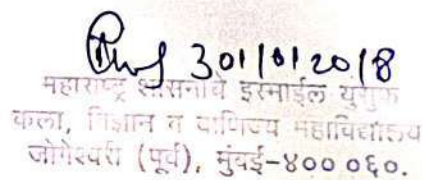 30/01/2018
महाराष्ट्र शासनाचे इस्माईल युसुफ
कला, विज्ञान व वाणिज्य महाविद्यालय
जोगेश्वरी (पूर्व), मुंबई-४०० ०६०.